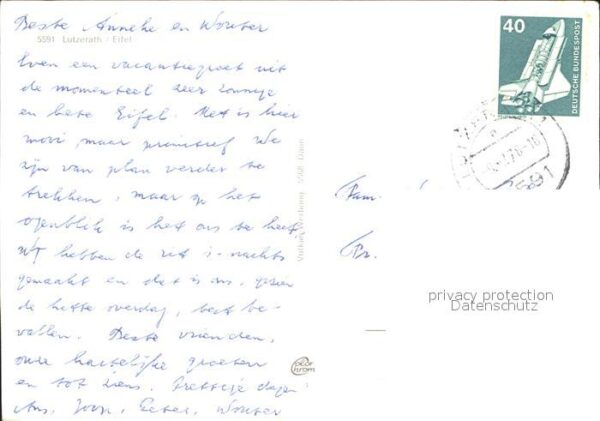 Beste Anneke en Wouter
5591 Lutzerath / Eifel
Even een vacantiegroet uit
de momenteel zeer zonnige
en hete Eifel. Het is hier
mooi maar primitief. We
zijn van plan verder te
trekken, maar op het
ogenblik is het ons te heet,
We hebben de reis 's-nachts
gemaakt en dat is ons, gezien
de hitte overdag, best be-
vallen. Beste vrienden,
onze hartelijke groeten
en tot ziens. Prettige dagen
Joop, Wouter
Fam.
Pr.
40
DEUTSCHE BUNDESPOST
5591
5568 Daun
privacy protection
Datenschutz